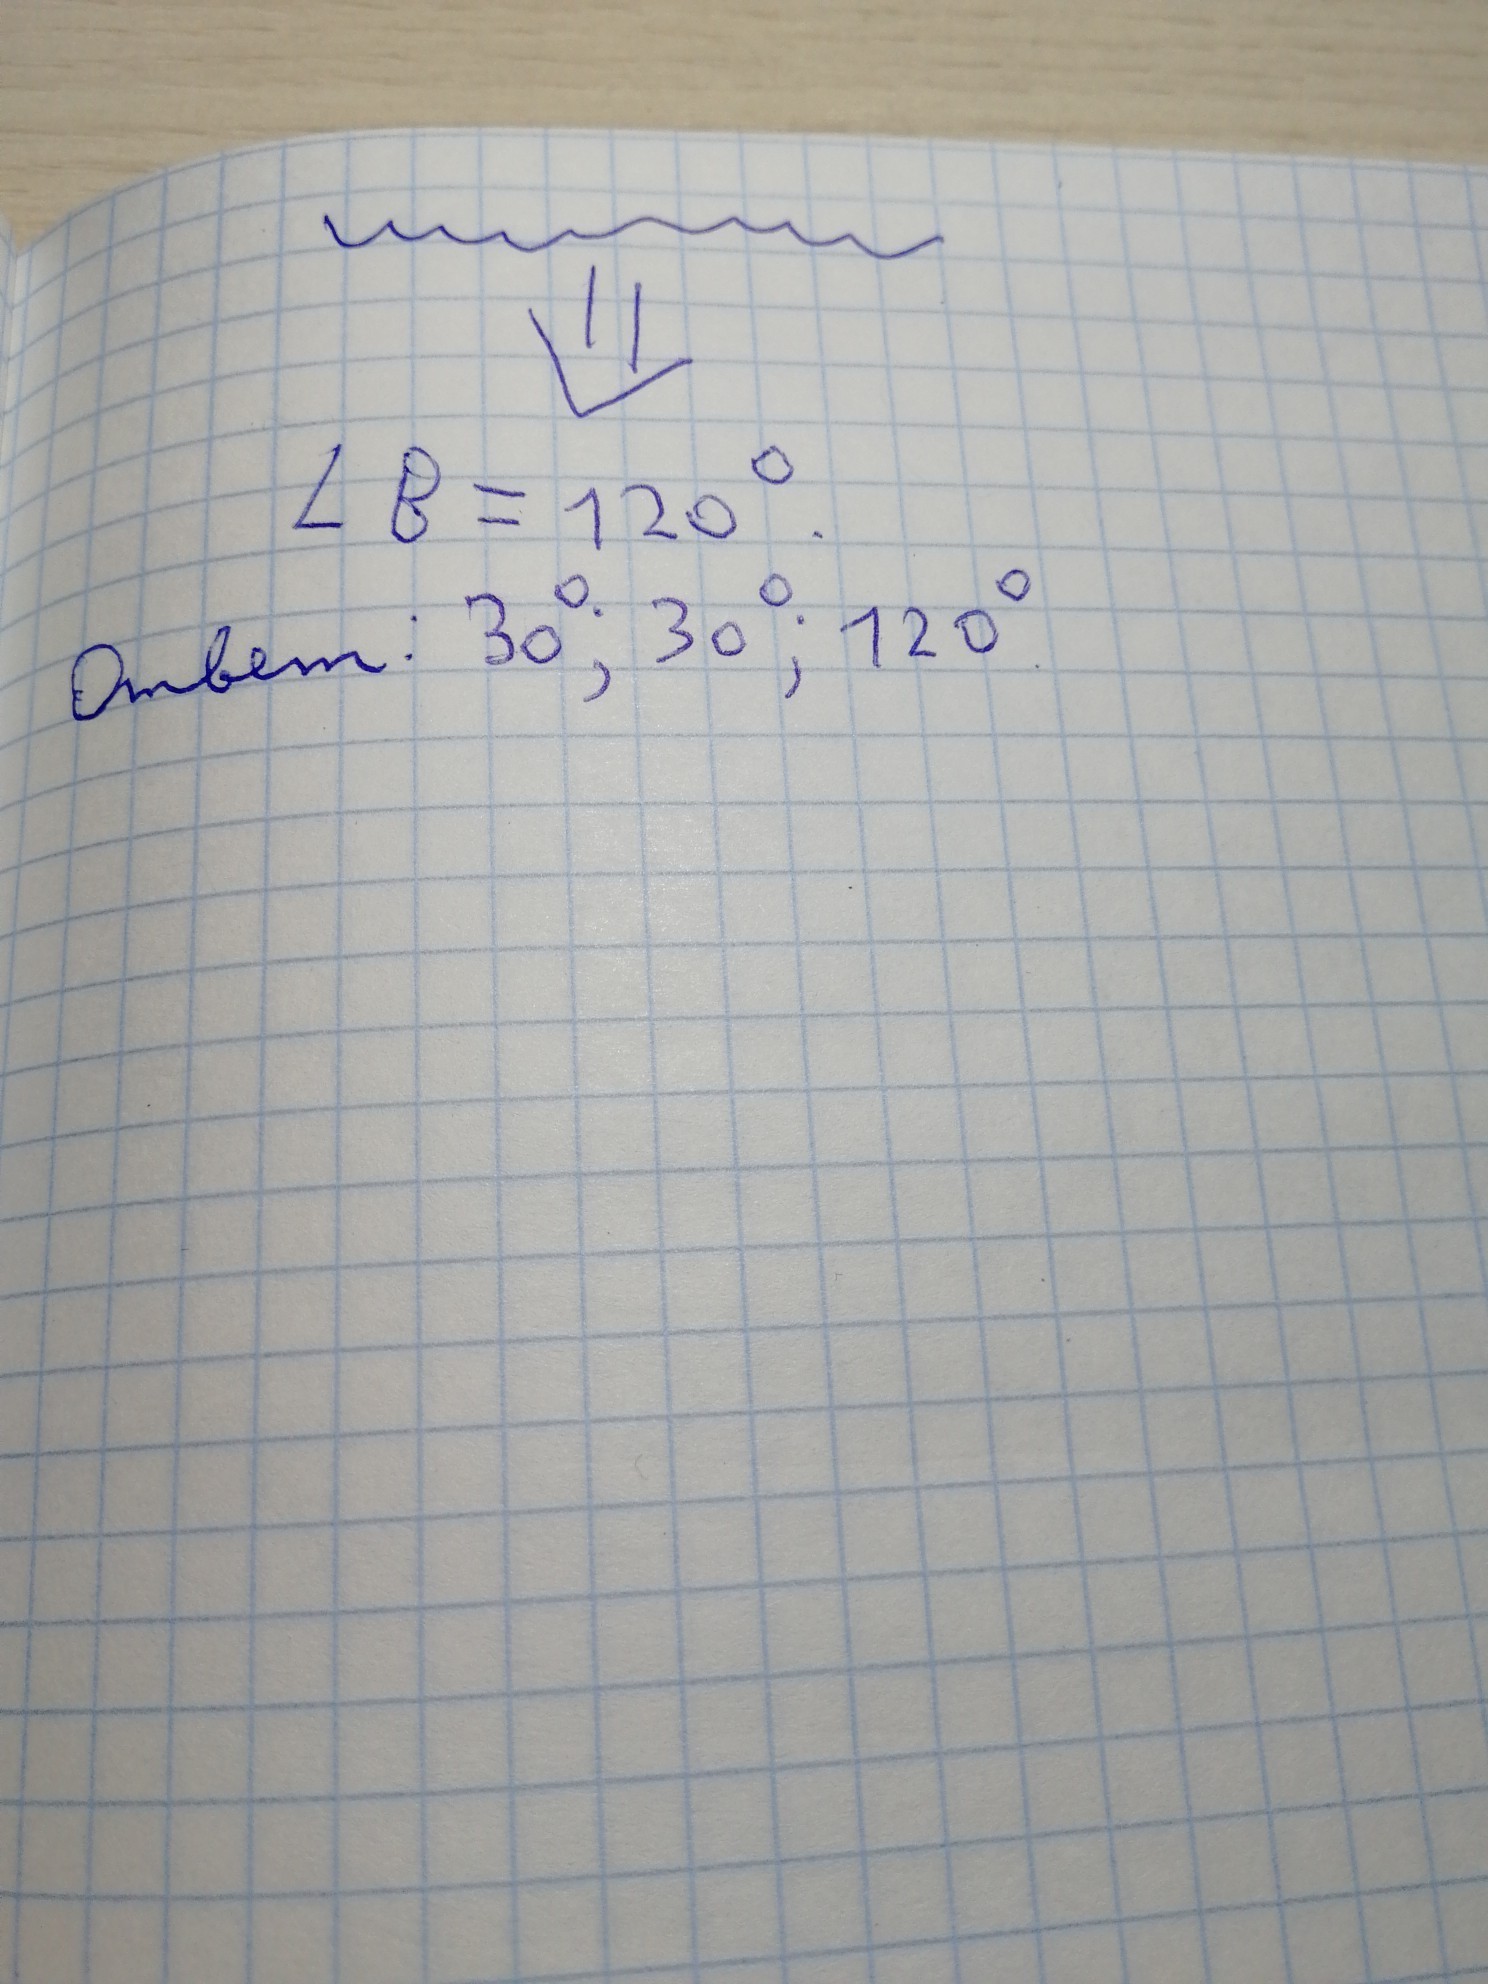 ∠ B = 120°.
Ответ: 30°; 30°; 120°.